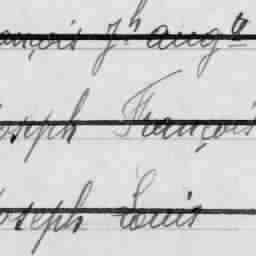 ançois Jh augte
oseph François
oseph Louis